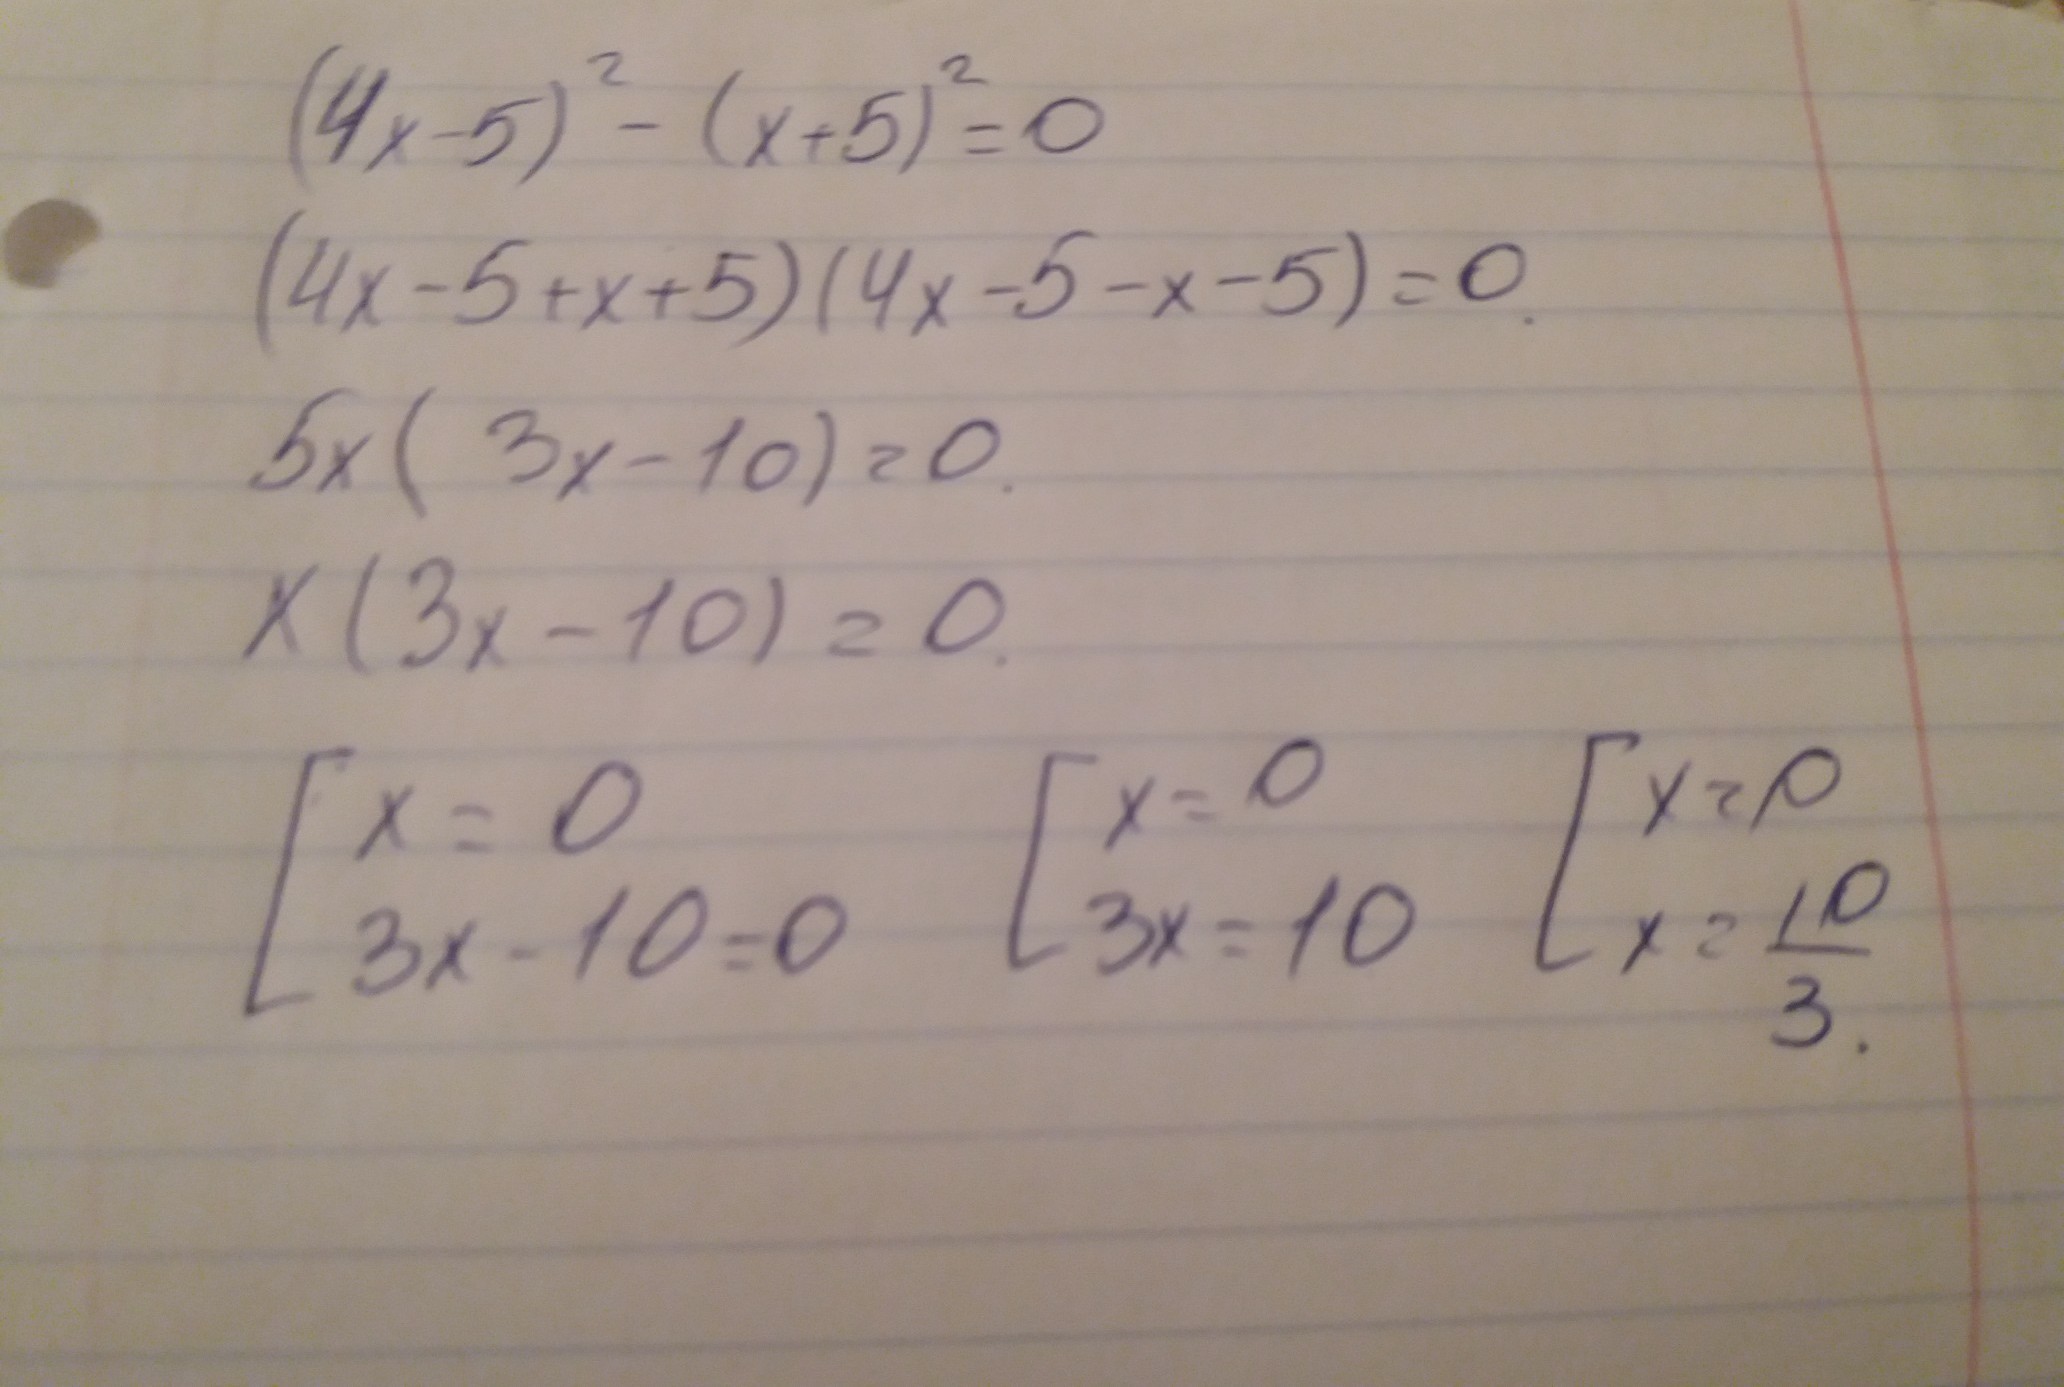 (4x-5)² - (x+5)² = 0
(4x-5+x+5)(4x-5-x-5) = 0.
5x(3x-10) = 0.
x(3x-10) = 0.
[x = 0 [x = 0 [x = 0
3x-10=0 3x=10 x = 10/3.